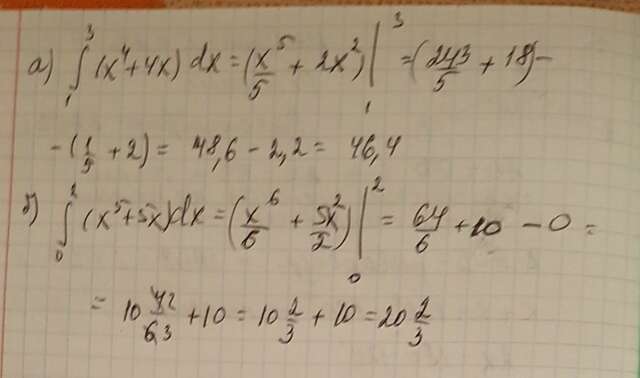 а) ∫₁³ (x⁴+4x) dx = (x⁵/5 + 2x²)|₁³ = (243/5 + 18) −
− (1/5 + 2) = 48,6 − 2,2 = 46,4
б) ∫₀² (x⁵+5x)dx = (x⁶/6 + 5x²/2)|₀² = 64/6 + 10 − 0 =
= 10 4̸2/6̸3 + 10 = 10 2/3 + 10 = 20 2/3